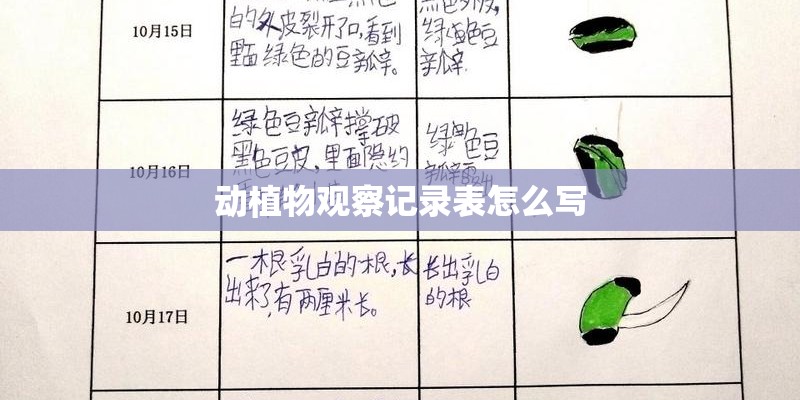 10月15日
的外皮裂开了口,看到
里面绿色的豆瓣。
绿色豆
瓣
10月16日
绿色豆瓣撑破
黑色豆皮,里面隐约
绿色豆
瓣
动植物观察记录表怎么写
10月17日
一根乳白的根,长
出来了,有两厘米长。
长出乳白
的根